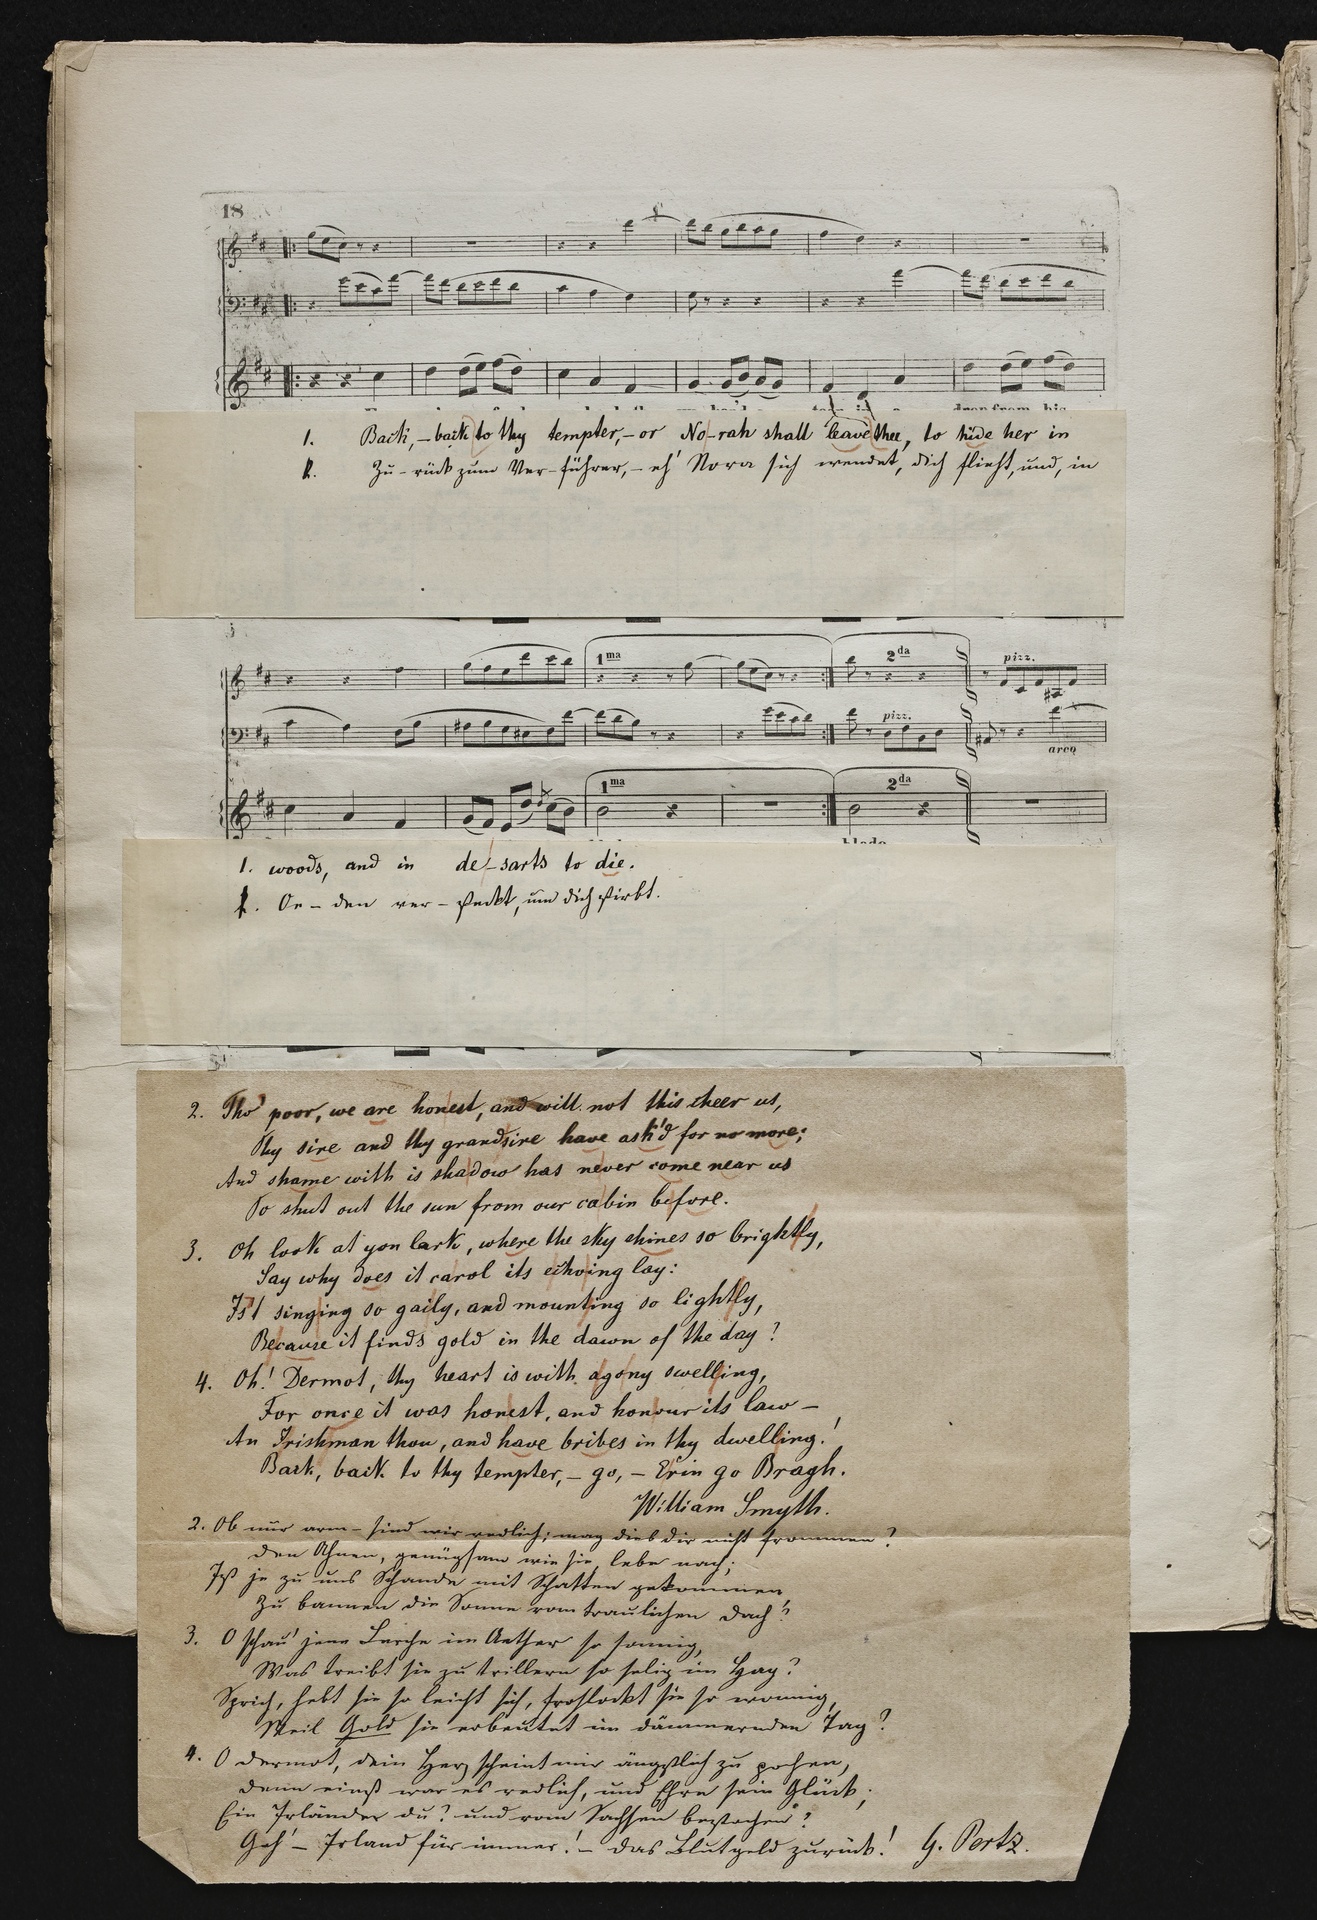 18
1. Back, – back to thy tempter, – or No-rah shall leave thee, to hide her in
2. Zu-rück zum Ver-führer, – eh' Nora sich wendet, dich flieht, und, in
1ma 2da pizz.
pizz. arco
1ma 2da
1. woods, and in de-sarts to die.
2. Oe-den ver-steckt, um dich stirbt.
2. Tho' poor, we are honest, and will not this cheer us,
Thy sire and thy grandsire have ask'd for no more;
And shame with is shadow has never come near us
To shut out the sun from our cabin before.
3. Oh look at yon lark, where the sky shines so brightly,
Say why does it carol its echoing lay:
Is't singing so gaily, and mounting so lightly,
Because it finds gold in the dawn of the day?
4. Oh! Dermot, thy heart is with agony swelling,
For once it was honest, and honour its law –
An Irishman thou, and have bribes in thy dwelling!
Back, back to thy tempter, – go, – Erin go Bragh.
William Smyth.
2. Ob nur arm – sind wir redlich; mag dies dir nicht frommen?
Den Ahnen, genügsam wie sie, lebe nach;
Ist je zu uns Schande mit Schatten gekommen
Zu bannen die Sonne vom traulichen Dach?
3. O schau' jene Lerche im Aether so sonnig,
Was treibt sie zu trillern so selig im Hag?
Sprich, hebt sie so leicht sich, frohlockt sie so wonnig,
Weil Gold sie erbeutet im dämmernden Tag?
4. O Dermot, dein Herz scheint mir ängstlich zu pochen,
Denn einst war es redlich, und Ehre sein Glück;
Ein Irländer du? und vom Sachsen bestochen?
Geh! – Irland für immer! – das Blutgeld zurück! G. Pertz.